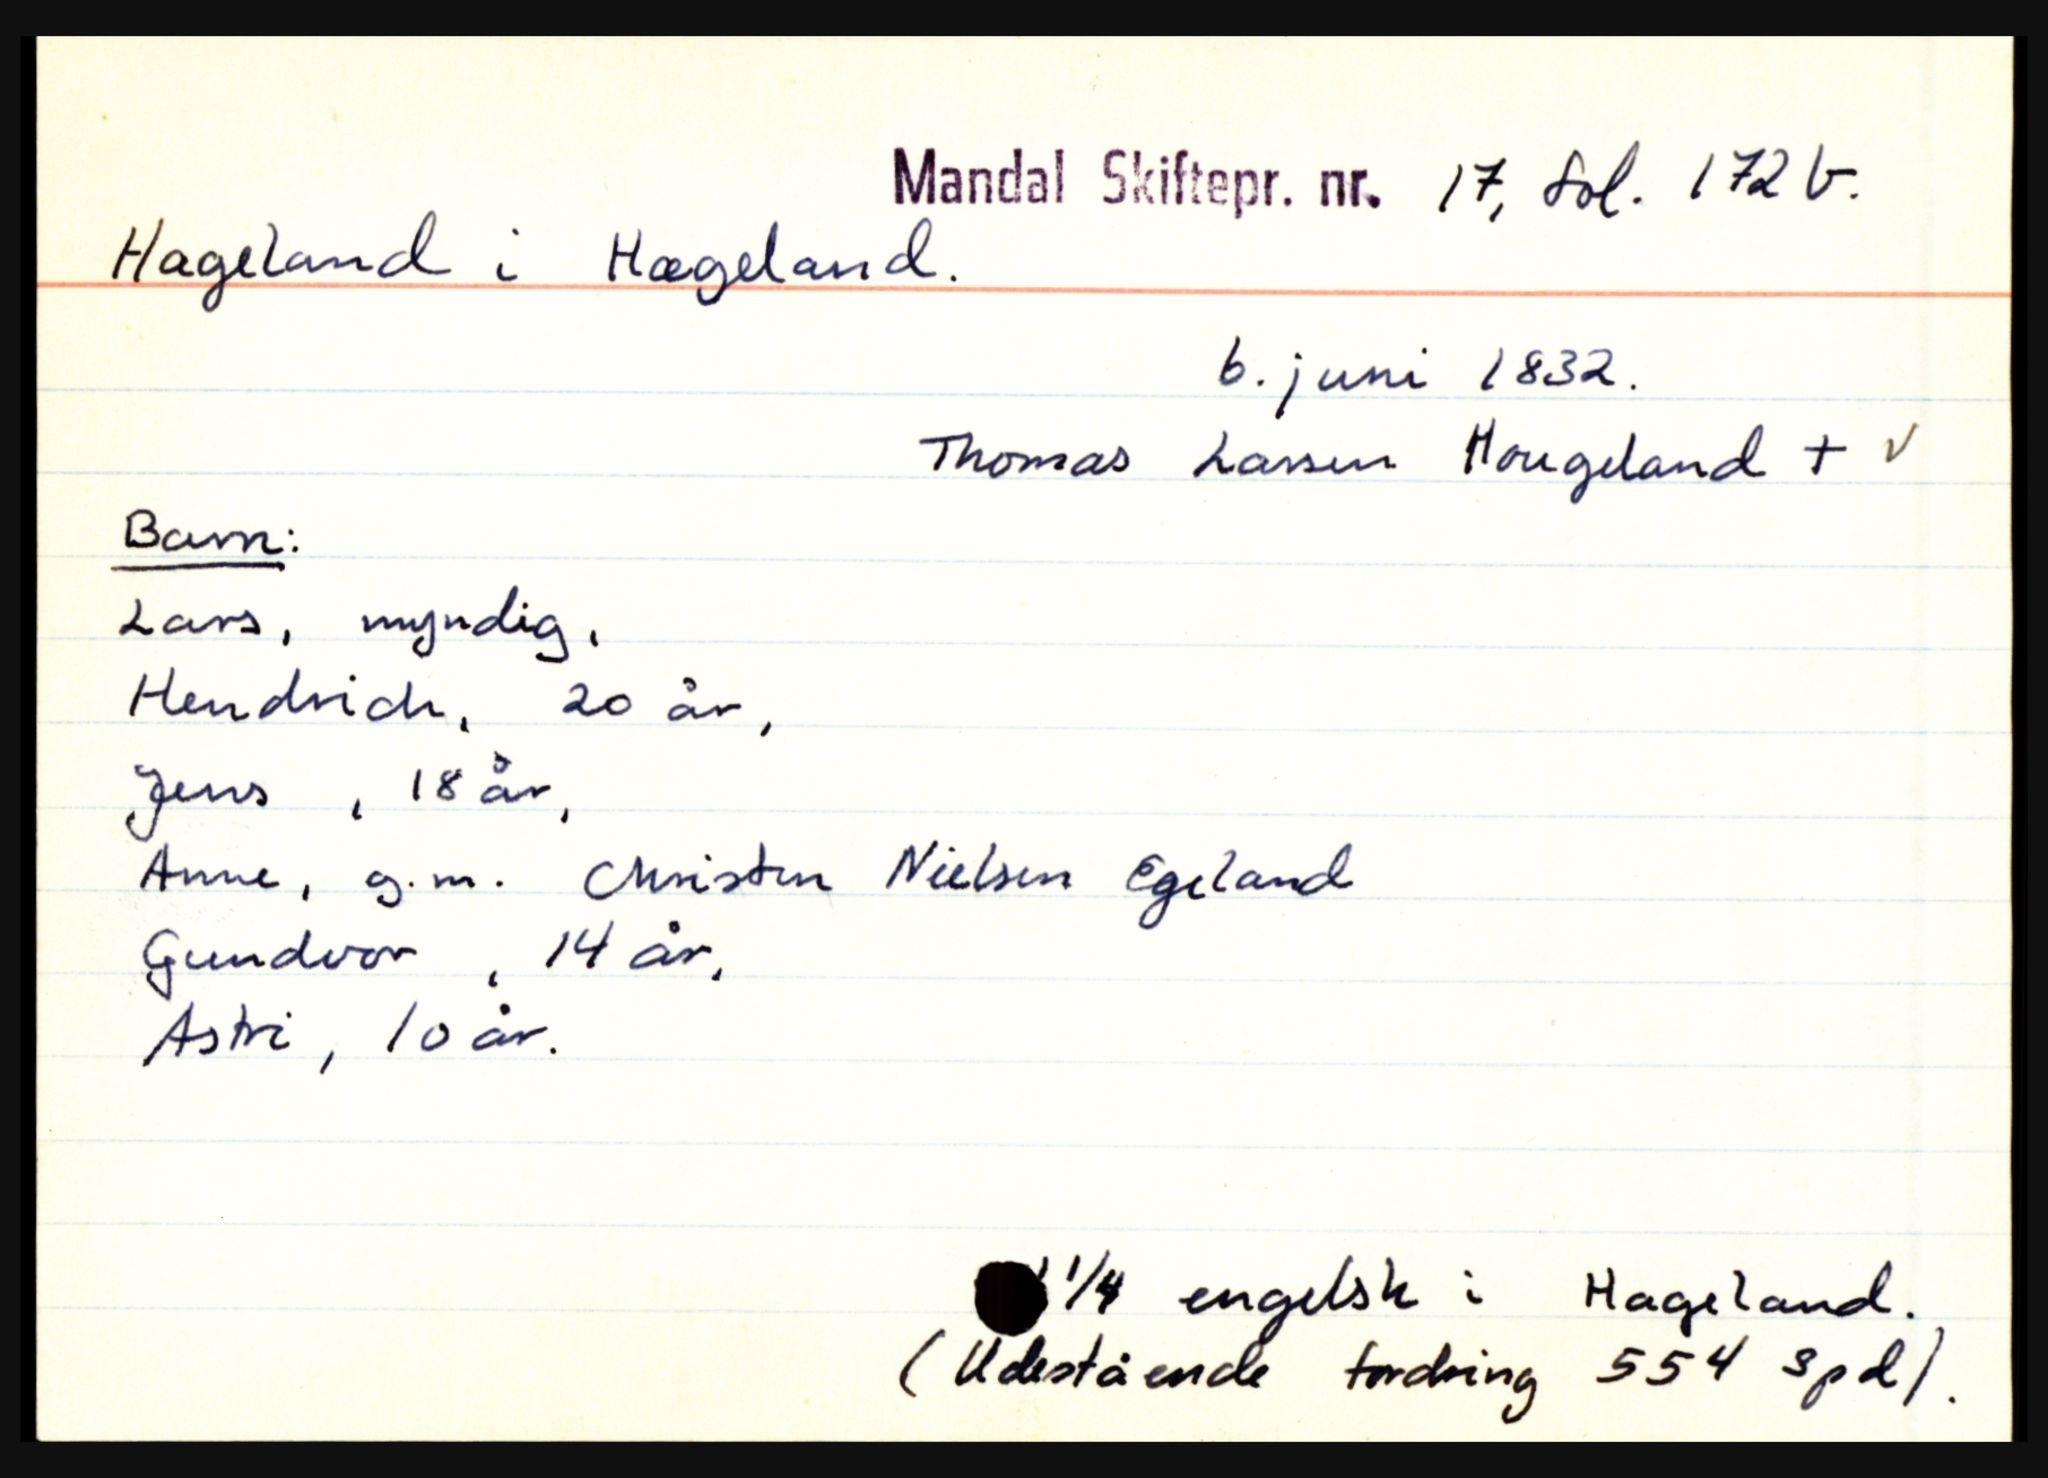 Mandal Skiftepr. nr. 17, fol. 172 b.
Hageland i Hægeland.
6. juni 1832.
Thomas Larsen Hougeland + ✓
Barn:
Lars, myndig,
Hendrich, 20 år,
Jens, 18 år,
Anne, g.m. Christen Nielsen Egeland
Gundvor, 14 år,
Astri, 10 år.
1/4 engelsk i Hageland.
(Udestående fordring 554 spd).